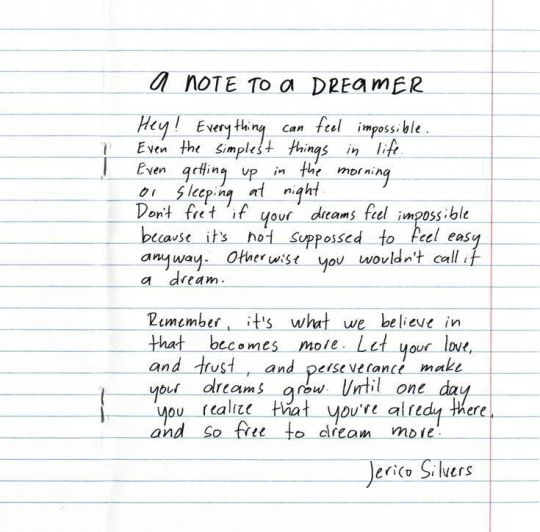 a NOTE TO a DREAMER
Hey! Everything can feel impossible.
Even the simplest things in life.
Even getting up in the morning
or sleeping at night.
Don't fret if your dreams feel impossible
because it's not suppossed to feel easy
anyway. Otherwise you wouldn't call it
a dream.
Remember, it's what we believe in
that becomes more. Let your love,
and trust, and perseverance make
your dreams grow. Until one day
you realize that you're alredy there,
and so free to dream more.
Jerico Silvers